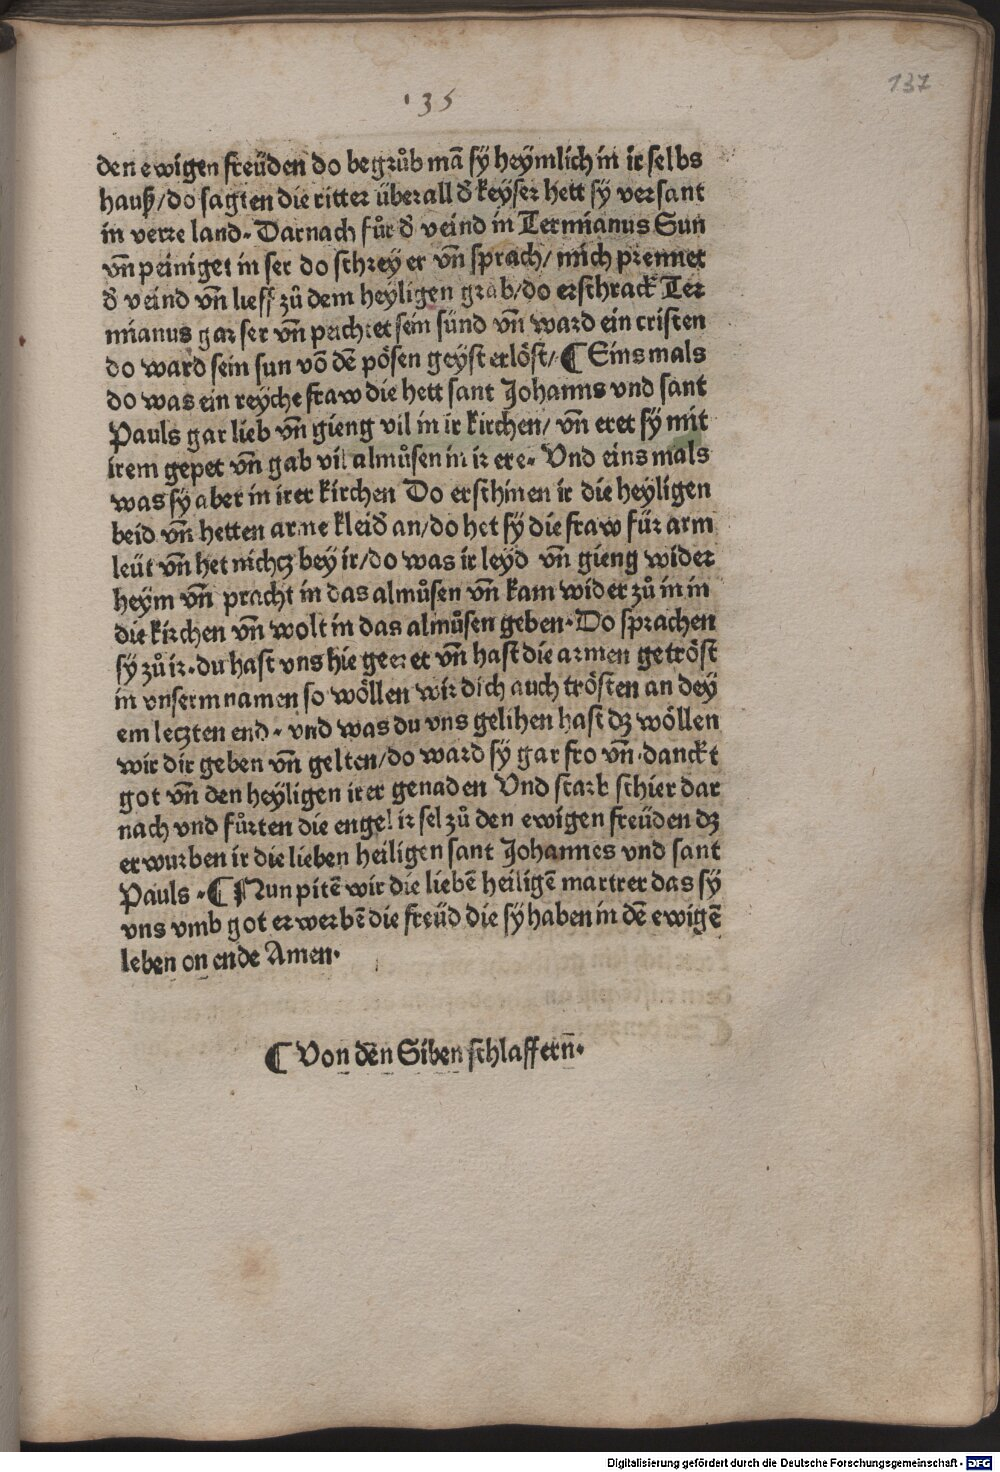 135
137
den ewigen freüden do begrůb mā sÿ heÿmlich in ir selbs
hauß/do sagten die ritter überall ď keÿser hett sÿ versant
in verre land. Darnach fůr ď veind in Termianus Sun
vn̄ peiniget in ser do schreÿ er vn̄ sprach/ mich prennet
ď veind vn̄ lieff zů dem heÿligen grab/do erschrack Ter
mianus gar ser vn̄ peichtet sein sünd vn̄ ward ein cristen
do ward sein sun vō dē pösen geÿst erlöst/ ¶ Eins mals
do was ein reÿche fraw die hett sant Johanns vnd sant
Pauls gar lieb vn̄ gieng vil in ir kirchen/ vn̄ eret sÿ mit
irem gepet vn̄ gab vil almůsen in ir ere. Vnd eins mals
was sÿ aber in irer kirchen Do erschinen ir die heÿligen
beid vn̄ hetten arme kleid an/do het sÿ die fraw für arm
leüt vn̄ het nichcz beÿ ir/do was ir leÿd vn̄ gieng wider
heÿm vn̄ pracht in das almůsen vn̄ kam wider zů in in
die kirchen vn̄ wolt in das almůsen geben. Do sprachen
sÿ zů ir. du hast vns hie geeret vn̄ hast die armen getröst
in vnserm namen so wöllen wir dich auch trösten an deÿ
em leczten end. vnd was du vns gelihen hast dz wöllen
wir dir geben vn̄ gelten/do ward sÿ gar fro vn̄. danckt
got vn̄ den heÿligen irer genaden Vnd starb schier dar
nach vnd fůrten die engel ir sel zů den ewigen freüden dz
erwurben ir die lieben heiligen sant Johannes vnd sant
Pauls. ¶ Nun pitē wir die liebē heiligē martrer das sÿ
vns vmb got erwerbē die freüd die sÿ haben in dē ewigē
leben on ende Amen.
¶ Von den Siben schlaffern̄.
Digitalisierung gefördert durch die Deutsche Forschungsgemeinschaft - DFG